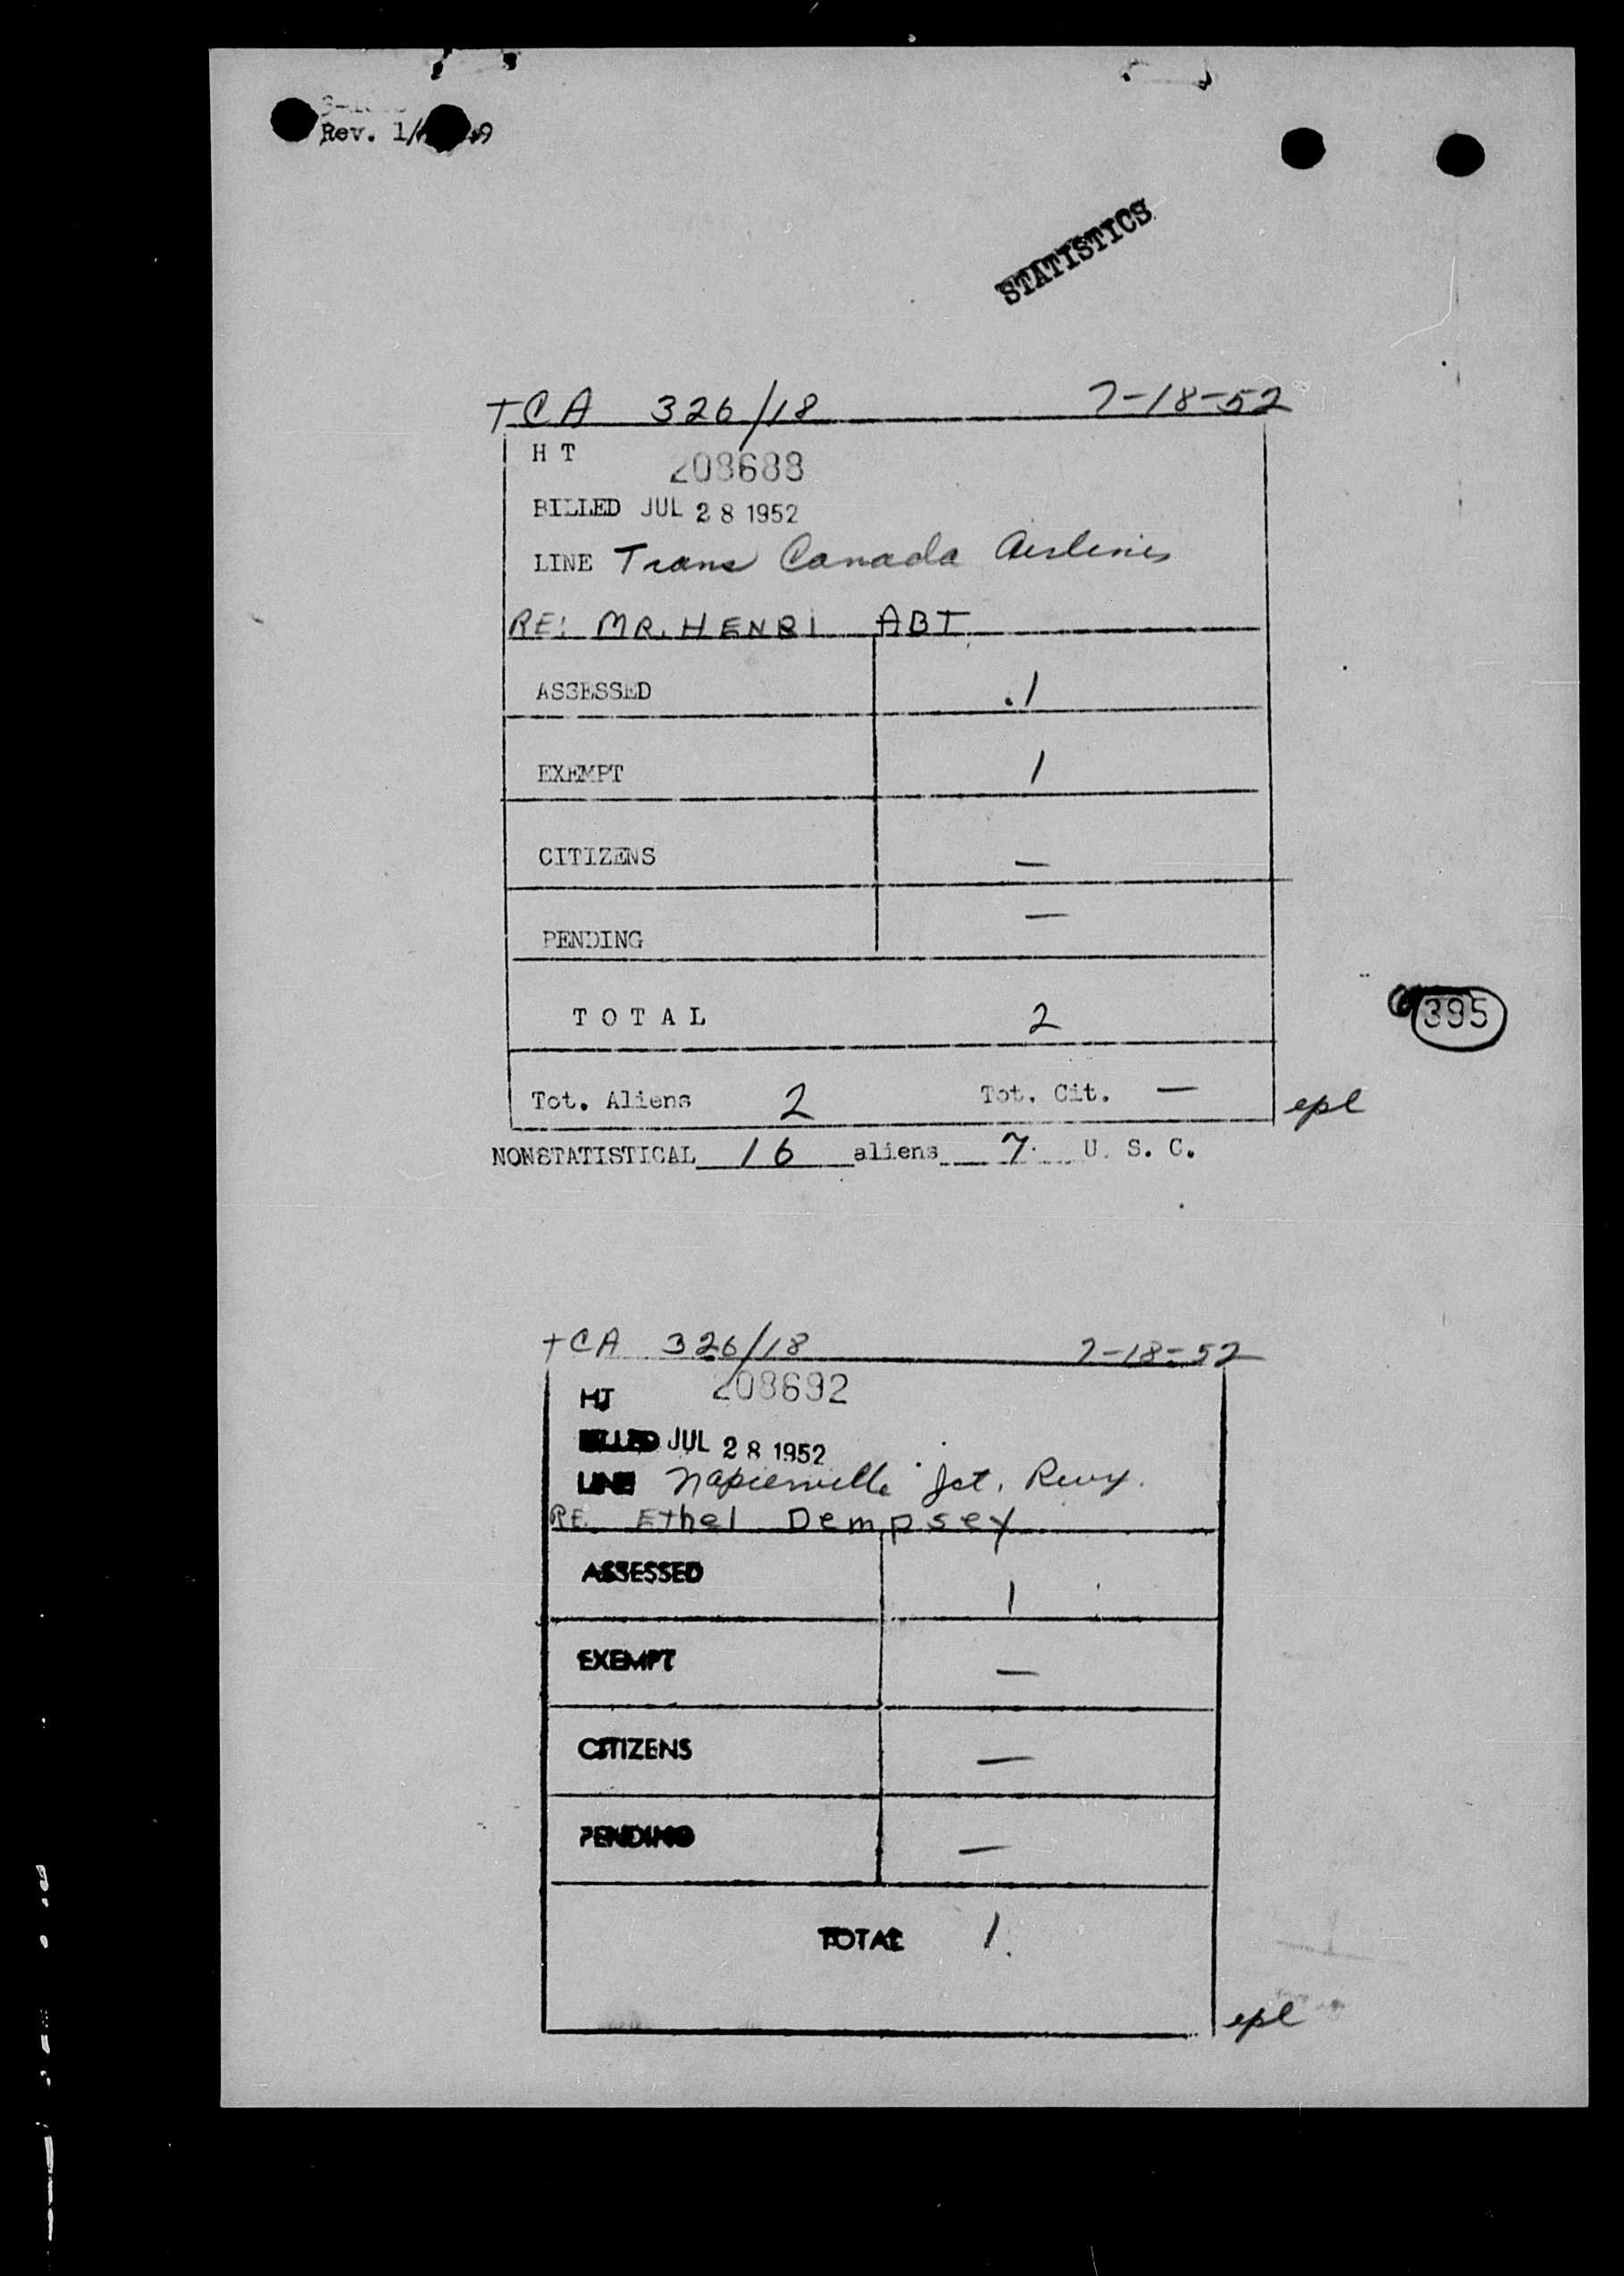 Rev. 1/
STATISTICS
TCA 326/18 7-18-52
H T 208688
BILLED JUL 28 1952
LINE Trans Canada Airlines
RE: MR. HENRI ABT
ASSESSED 1
EXEMPT 1
CITIZENS —
PENDING —
TOTAL 2
395
Tot. Aliens 2 Tot. Cit. —
epl
NONSTATISTICAL 16 aliens 7 U. S. C.
TCA 326/18 7-18-52
HT 208692
BILLED JUL 28 1952
LINE Napierville Jct. Rwy.
RE. Ethel Dempsey
ASSESSED 1
EXEMPT —
CITIZENS —
PENDING —
TOTAL 1
epl